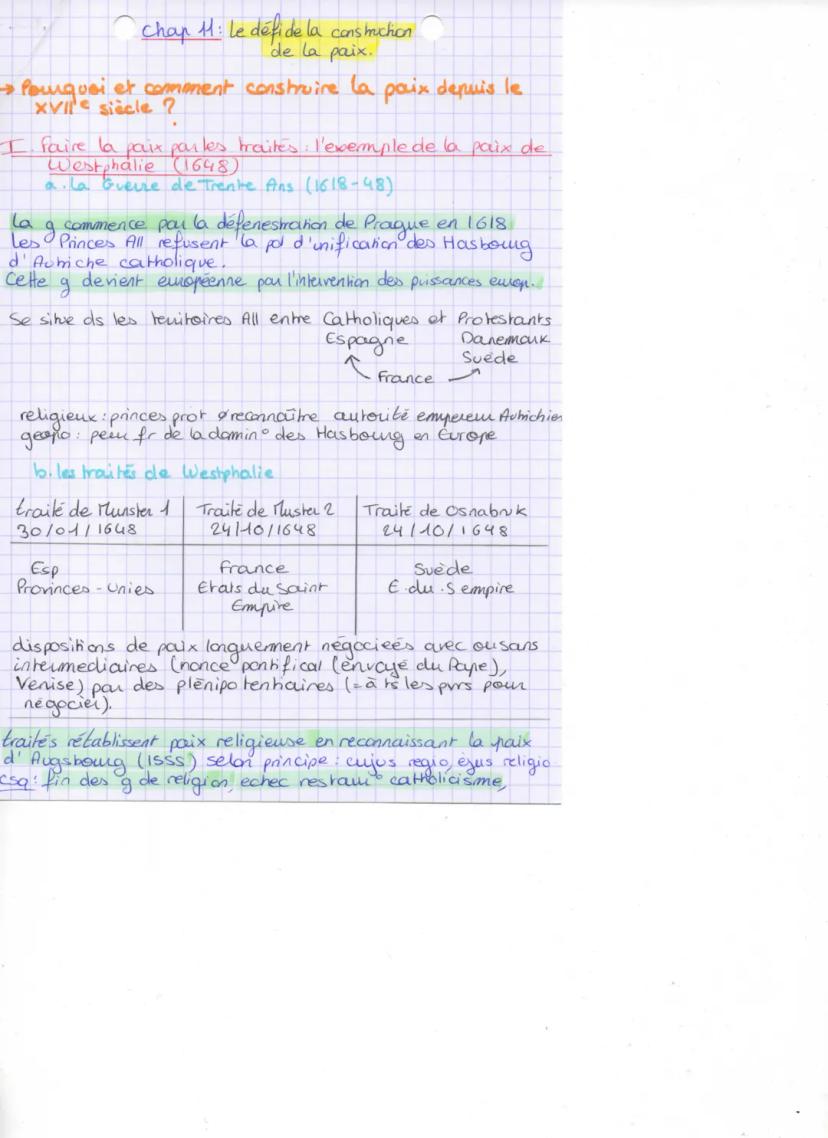 Chap 11: Le défi de la construction
de la paix.
→ Pourquoi et comment construire la paix depuis le
XVIIe siècle ?
I. Faire la paix par les traités : l'exemple de la paix de
Westphalie (1648)
a. La Guerre de Trente Ans (1618-48)
La g commence par la défenestration de Prague en 1618
les Princes All refusent la pol d'unification des Hasbourg
d'Autriche catholique.
Cette g devient européenne par l'intervention des puissances europ.
Se situe ds les territoires All entre Catholiques et Protestants
Espagne Danemark
Suède
France
religieux : princes prot ø reconnaître autorité empereur Autrichien
géopo : peur fr de la domin° des Hasbourg en Europe
b. les traités de Westphalie
traité de Munster 1 Traité de Muster 2 Traité de Osnabruk
30/01/1648 24/10/1648 24/10/1648
Esp France Suède
Provinces-Unies Etats du Saint E. du . S empire
Empire
dispositions de paix longuement négociées avec ou sans
intermediaires (nonce pontifical (envoyé du Pape),
Venise) par des plénipotentiaires (= à ts les pvrs pour
négocier).
traités rétablissent paix religieuse en reconnaissant la paix
d'Augsbourg (1555) selon principe : cujus regio, ejus religio
csq : fin des g de religion, echec restaur° catholicisme,